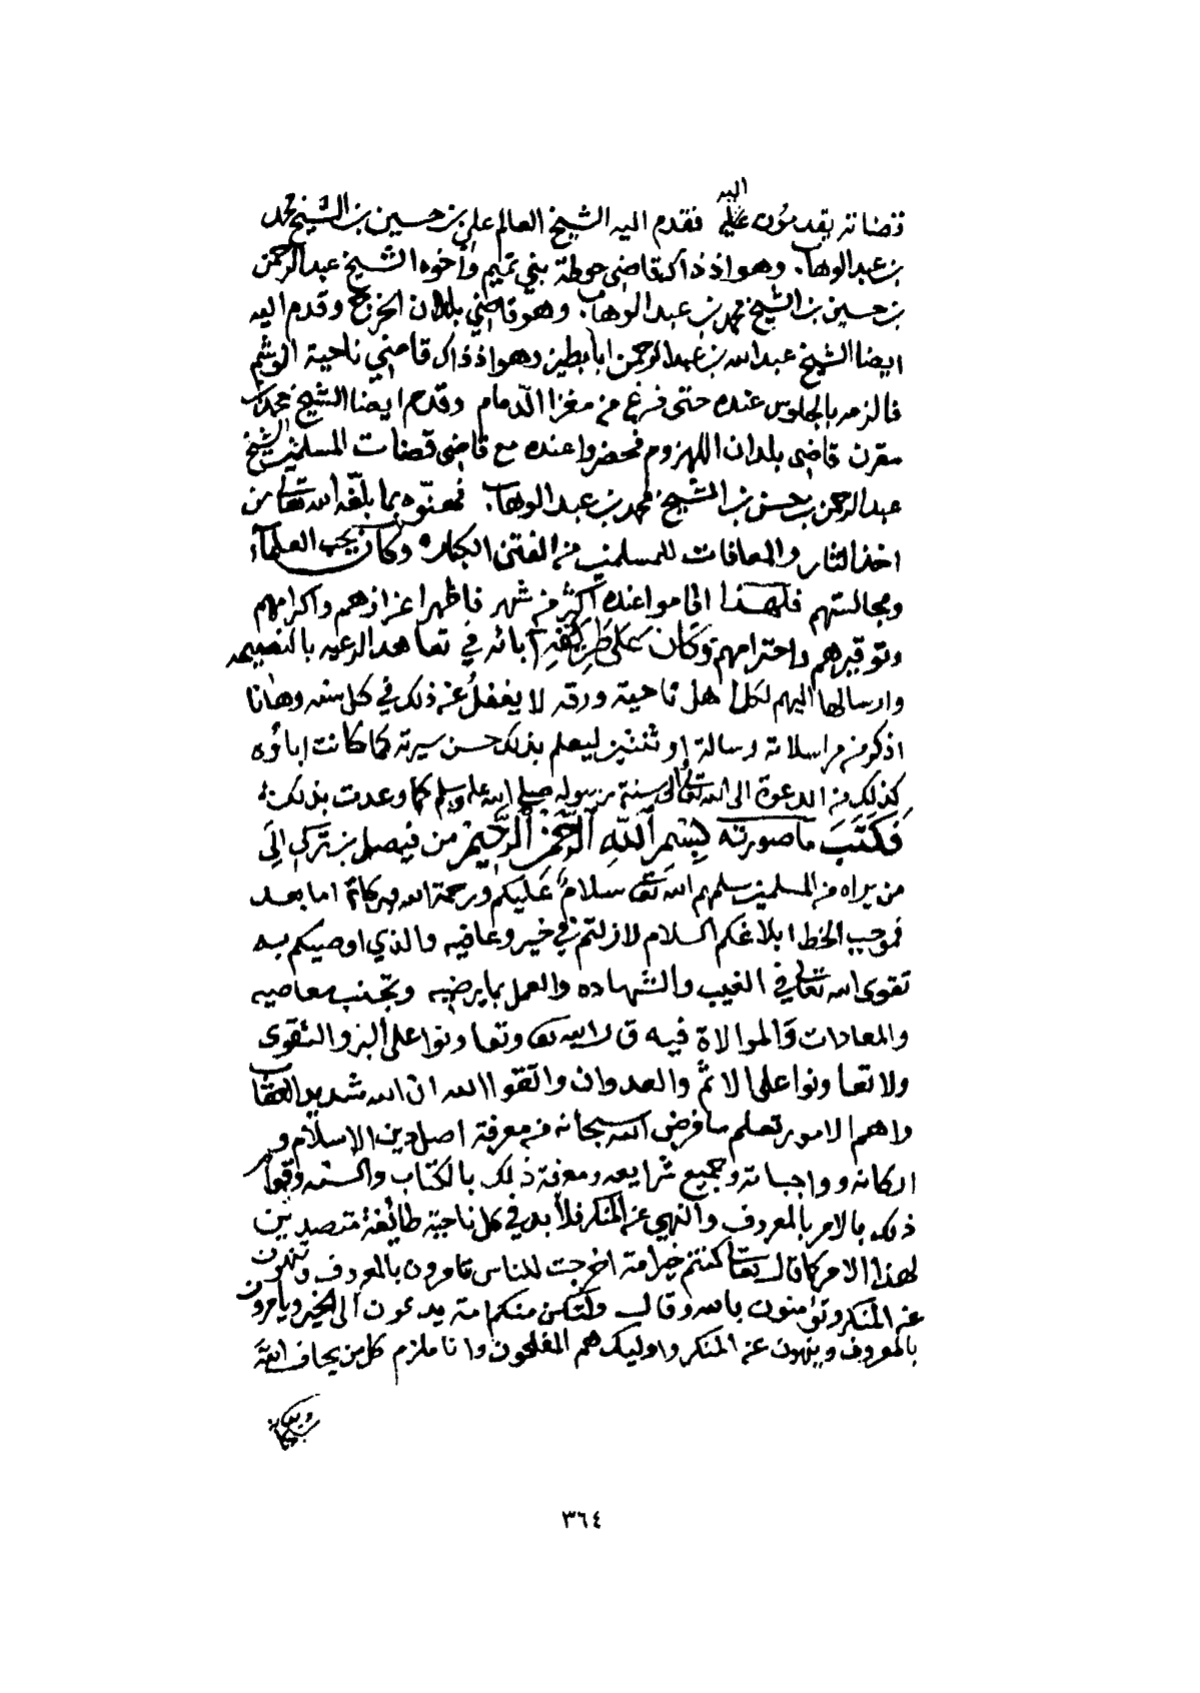 اليه
قضاته يقدمون عليه فقدم اليه الشيخ العالم علي بن حسين بن الشيخ محمد
بن عبدالوهاب. وهو اذ ذاك قاضي حوطة بني تميم وأخوه الشيخ عبدالرحمن
بن حسين بن الشيخ محمد بن عبدالوهاب. وهو قاضي بلدان الخرج وقدم اليه
ايضا الشيخ عبدالله بن عبدالرحمن ابا بطين وهو اذ ذاك قاضي ناحية الوشم
فالزمه بالجلوس عنده حتى فرغ من مغزا الدمام وقدم ايضا الشيخ محمد بن
مقرن قاضي بلدان المحمل فحضروا عنده مع قاضي قضات المسلمين الشيخ
عبدالرحمن بن حسن بن الشيخ محمد بن عبدالوهاب. فهنّوه بما بلّغه الله تعالى من
اخذ الثار والمعافات للمسلمين من الفتن الكبار وكان يحب العلماء
ومجالستهم فلهذا اقاموا عنده اكثر من شهر فاظهر اعزازهم واكرامهم
وتوقيرهم واحترامهم وَكَان عَلى طَرِيقَةِ آبائه في تعاهد الرعيه بالنصيحه
وارسالها اليهم لكل اهل ناحية ورقه لا يغفلُ عن ذلك في كل سنه وهانا
اذكر من مراسلاته رسالة او ثنتين ليعلم بذلك حسن سيرته كما كانت اباؤه
كذلك من الدعوة الى الله تعالى وسنة رسوله صلى الله عليه وسلم كما وعدت بذلك
فَكَتَبَ ما صورته بِسْمِ اللَّهِ الرَّحْمَنِ الرَّحِيمِ من فيصل بن تركي إلَى
من يراه من المسلمين سلمهم الله تعالى سلامٌ عَليكم ورحمة الله وبركاته اما بعد
فموجب الخط ابلاغكم السلام لا زلتم في خير وعافيه والذي اوصيكم به
تقوى الله تعالى في الغيب والشهاده والعمل بما يرضيه وتجّنب معاصيه
والمعادات وَالموالاة فيه قال الله تعالى وتعاونوا على البر والتقوى
ولا تعاونوا على الاثم والعدوان واتقوا الله ان الله شديد العقاب
واهم الامور تعلم ما فرض الله سبحانه من معرفة اصل دين الاسلام و
اركانه وواجباته وجميع شرايعه ومعرفة ذلك بالكتاب والسنه وقوام
ذلك بالامر بالمعروف والنهي عن المنكر فلا بد في كل ناحية طائفة متصدين
لهذا الامر كما قال تعالى كنتم خير امة اخرجت للناس تامرون بالمعروف وتنهون
عن المنكر وتؤمنون بالله وقال ولتكن منكم امة يدعون الى الخير ويامرون
بالمعروف وينهون عن المنكر واوليك هم المفلحون وانا ملزم كل من يخاف اللهَ
٣٦٤